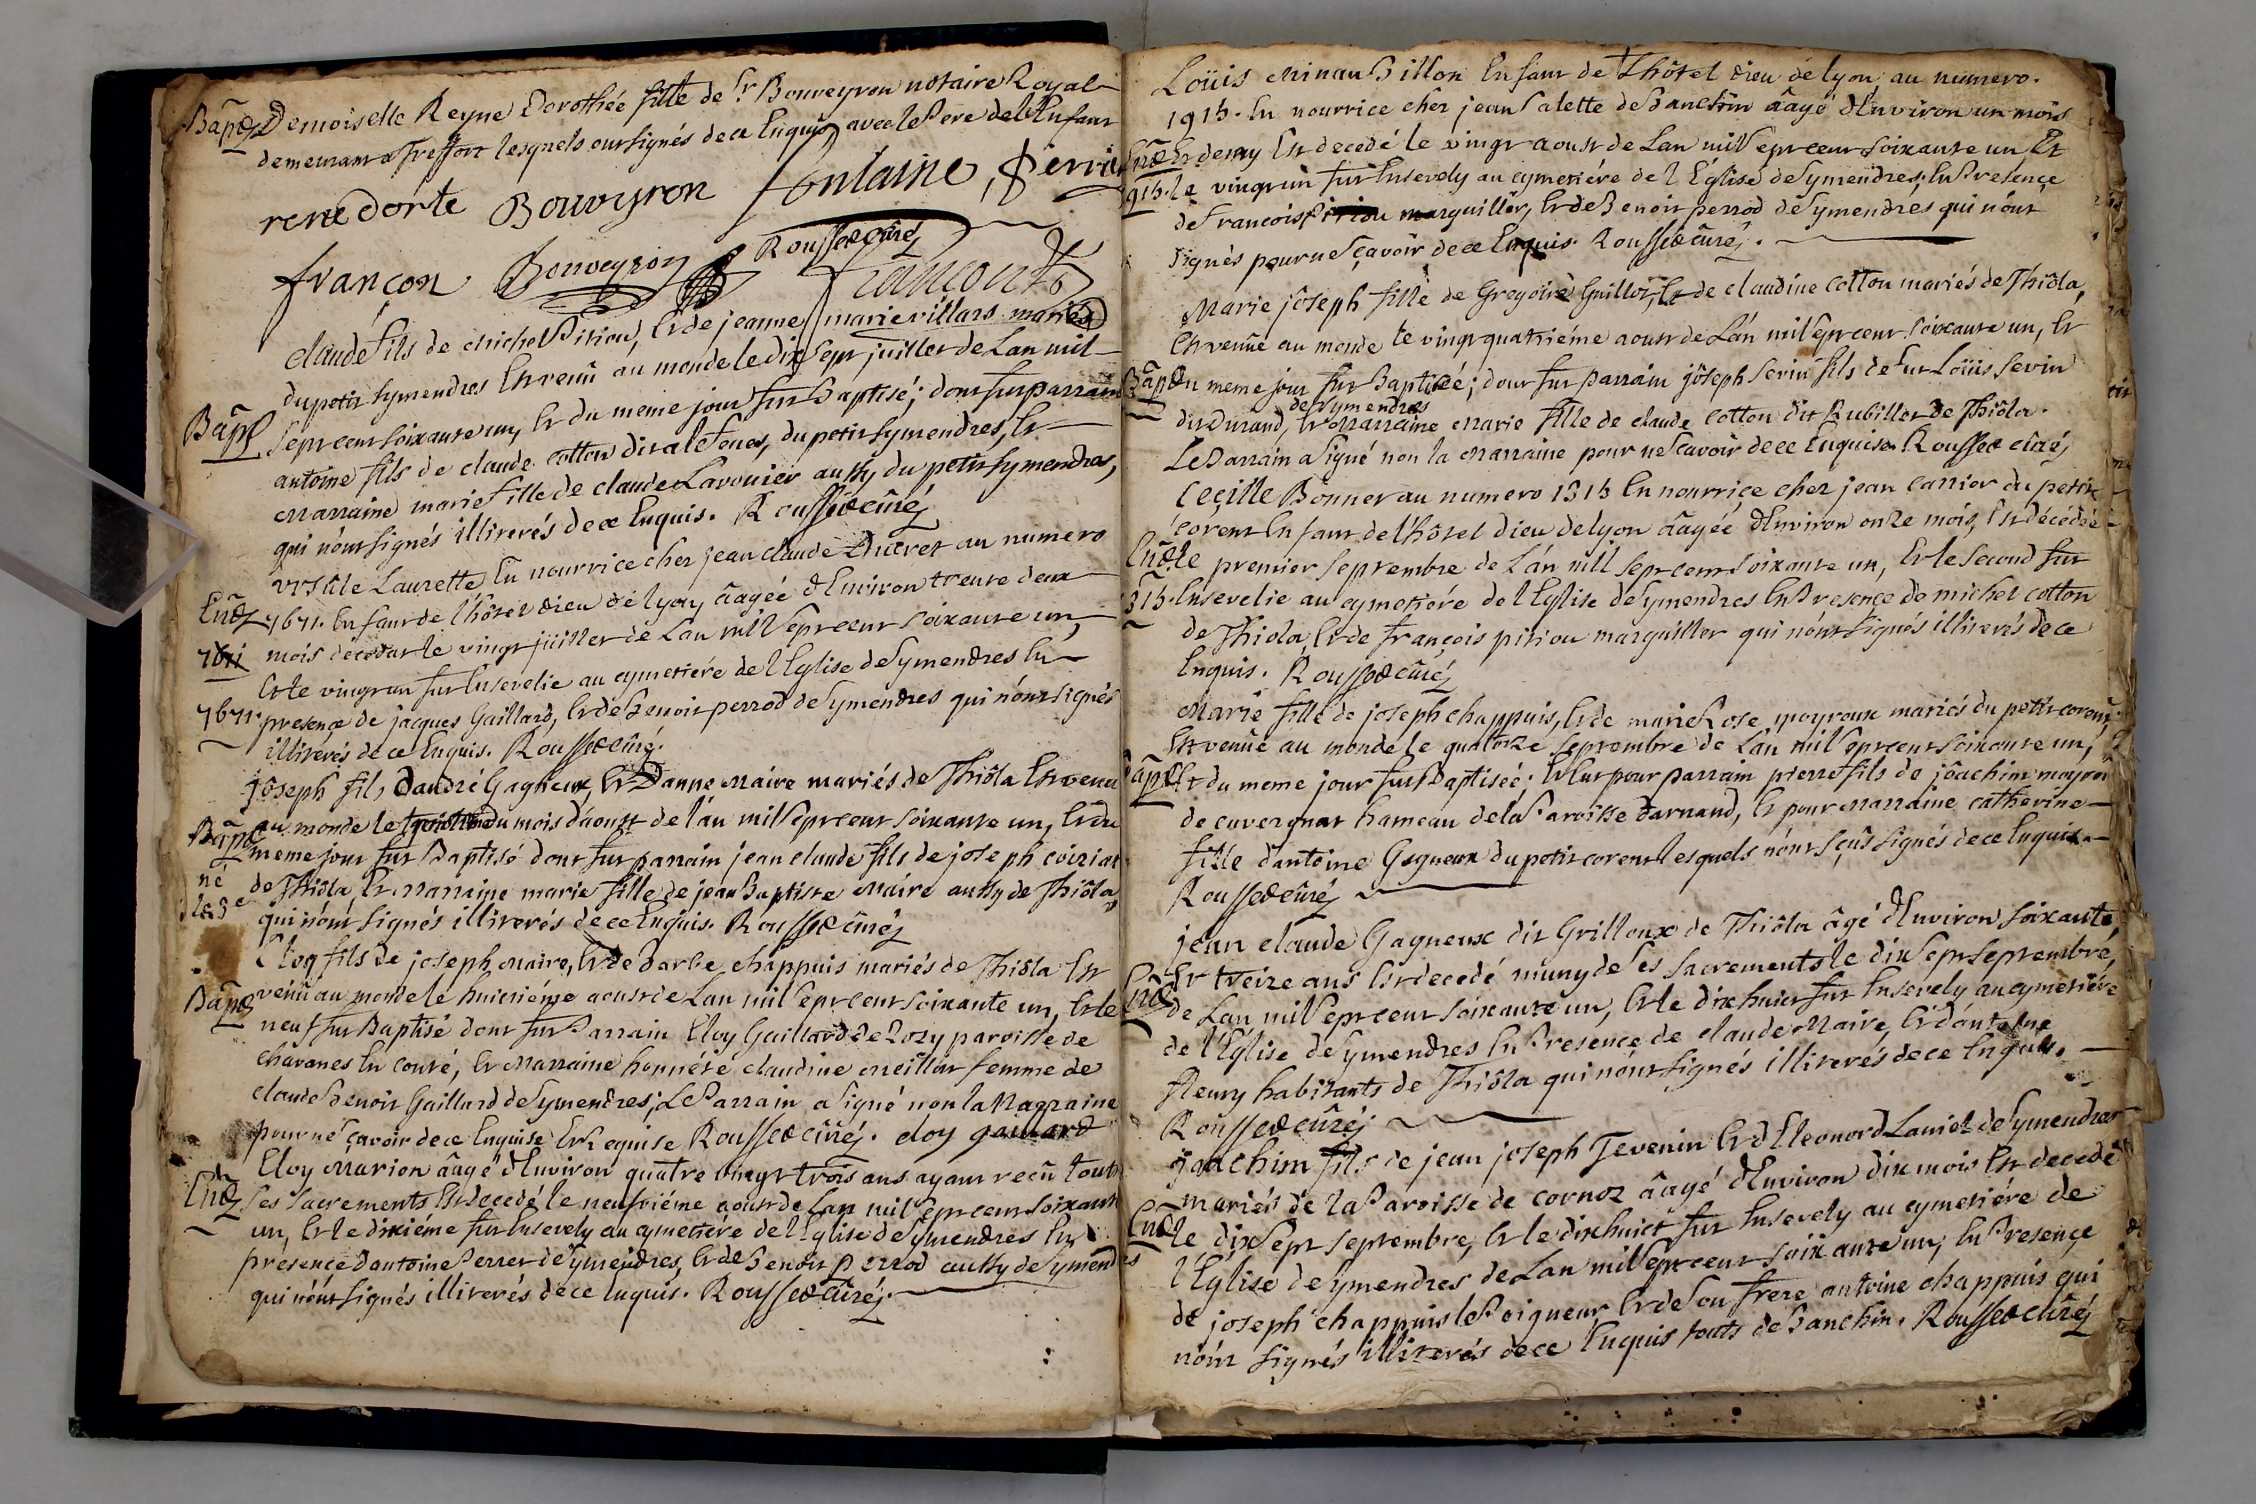 Demoiselle Reyne Dorothée fille de Sr. Bouveyron notaire Royal
Bapt
demeurant a Treffort lesquels ont signés de ce Enquis avec le Pere de l'Enfant
rene dorte Bouveyron fontaine, Perrin
Roussed curé
françon Bouveyron francon
Claude fils de michel Pitiou, Et de jeanne marie villars mariés
du petit symendres Est venu au monde le dix sept juillet de Lan mil
Bapt
sept cent soixante un, Et du meme jour fut Baptisé; dont fut parrain
antoine fils de claude cotton dit , du petit symendres, Et
Marraine marie fille de claude Lavonier aussy du petit symendres,
qui n'ont signés illiterés de ce Enquis. Roussed curé
Ursule Laurette En nourrice chez jean claude Ducret au numero
Ent
7671. Enfant de l'hôtel Dieu de lyon âagée d'Environ trente deux
7671
mois decedat le vingt juillet de Lan mil sept cent soixante un,
Et le vingt un fut Ensevelie au cymetiére de l'Eglise de Symendres En
7671.
presence de jacques Gaillard, Et de Benoit perrod de Symendres qui n'ont signés
illiterés de ce Enquis. Roussed curé.
joseph fils d'andré Gagneux, Et d'anne Maire mariés de Thiola Est venu
Bapt
au monde le du mois d'aoust de l'an mil sept cent soixante un, Et du
meme jour fut Baptisé dont fut parrain jean claude fils de joseph coiriat
né
le 3e
de Thiola, Et Marraine marie fille de jean Baptiste Maire aussy de Thiola
qui n'ont signés illiterés de ce Enquis. Roussed curé
Eloy fils de joseph Maire, Et de Barbe chappuis mariés de Thiola Est
Bapt
venu au monde le huictiéme aoust de Lan mil sept cent soixante un, Et le
neuf fut Baptisé dont fut Parrain Eloy Gaillard de Rosy paroisse de
chavanes En comté, Et Marraine honnéte claudine meillon femme de
claude Benoit Gaillard de Symendres; Le Parrain a signé non la Marraine
pour ne sçavoir de ce Enquise Et Requise Roussed curé. eloy gaillard
Eloy Marion âagé d'Environ quatre vingt trois ans ayant recû touts
Ent
ses sacrements Est decedé le neufviéme aoust de Lan mil sept cent soixante
un, Et le dixiéme fut Ensevely au cymetiére de l'Eglise de Symendres En
presence d'antoine Perret de Symendres, Et de Benoit Perrod aussy de Symendres
qui n'ont signés illiterés de ce Enquis. Roussed curé.
Loüis Billon Enfant de L'hôtel Dieu de lyon, au numero.
1915. En nourrice chez jean Salette de Banchin âagé d'Environ un mois
Ent
Et demy Est decedé le vingt aoust de Lan mil sept cent soixante un Et
915.
le vingt un fut Ensevely au cymetiére de l'Église de Symendres; En Presence
de francois Pitiou marguiller, Et de Benoit perrod de Symendres qui n'ont
signés pour ne sçavoir de ce Enquis. Roussed curé.
Marie joseph fille de Gregoire Guillot, Et de claudine Cotton mariés de Thiola,
Est venüe au monde le vingt quatriéme aoust de Lan mil sept cent soixante un, Et
Bapt
du meme jour fut Baptisée; dont fut parrain joseph sevin fils de fut Loüis sevin
de Symendres
dit Durand, Et Marraine Marie fille de claude cotton dit Rubillot de Thiola.
Le Parrain a signé non la Marraine pour ne sçavoir de ce Enquise. Roussed curé
Ceçille Bonner au numero 1315 En nourrice chez jean carrier du petit
corent Enfant de l'hôtel Dieu de lyon âagée d'Environ onze mois, Est decédée
Ent
le premier septembre de L'an mil sept cent soixante un, Et le second fut
315.
Ensevelie au cymetiére de l'Eglise de Symendres En Presence de michel cotton
de Thiola, Et de françois pitiou marguiller qui n'ont signés illiterés de ce
Enquis. Roussed curé
Marie fille de joseph chappuis, Et de marie Rose moyroux mariés du petit corent,
Est venüe au monde le quatorze septembre de Lan mil sept cent soixante un,
Bapt
Et du meme jour fut Baptisée; Et Eut pour parrain pierre fils de jôachim moyroux
de cuvergnat hameau de la Paroisse darnaud, Et pour Marraine catherine
fille d'antoine Gagneux du petit corent lesquels n'ont sçûs signés de ce Enquis.
Roussed curé
jean claude Gagneux dit Grilloux de Thiola âgé d'Environ soixante,
Ent
Et treize ans Est decedé muny de ses sacrements le dix sept septembre,
de Lan mil sept cent soixante un, Et le dix huict fut Ensevely au cymetiére
de l'Église de Symendres En Presence de claude Maire, Et d'antoine
fleury habitants de Thiola qui n'ont signés illiterés de ce Enquis.
Roussed curé
joachim fils de jean joseph Tevenin Et d'Eleonord Laniel de Symendres
mariés de la Paroisse de cornoz âagé d'Environ dix mois Est decedé
Ent
le dix sept septembre, Et le dix huict fut Ensevely au cymetiére de
l'Eglise de Symendres de Lan mil sept cent soixante un; En Presence
de joseph chappuis le Peigneur Et de son frere antoine chappuis qui
n'ont signés illiterés de ce Enquis touts de Banchin. Roussed curé